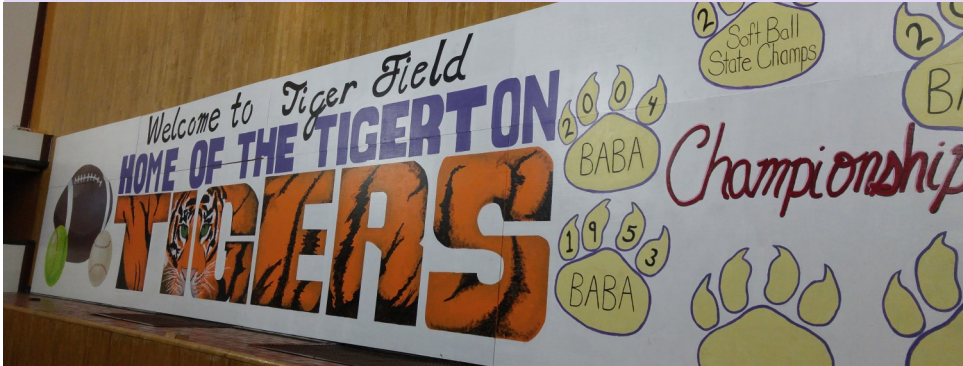 Welcome to Tiger Field
HOME OF THE TIGERTON
TIGERS
2004
BABA
1953
BABA
2
Soft Ball
State Champs
Championship
2